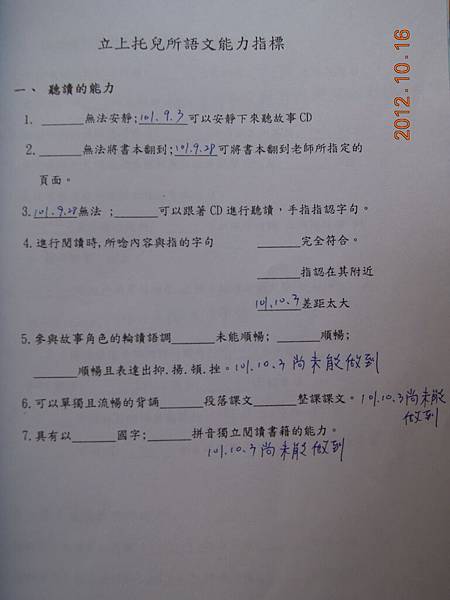 2012.10.16
立上托兒所語文能力指標
一、 聽讀的能力
1. ______無法安靜;101.9.3可以安靜下來聽故事CD
2. ______無法將書本翻到;101.9.28可將書本翻到老師所指定的
頁面。
3.101.9.28無法 ;______可以跟著CD進行聽讀,手指指認字句。
4.進行閱讀時,所唸內容與指的字句 ______完全符合。
______指認在其附近
101.10.3差距太大
5.參與故事角色的輪讀語調______未能順暢; ______順暢;
______順暢且表達出抑.揚.頓.挫。101.10.3 尚未能做到
6.可以單獨且流暢的背誦______段落課文______整課課文。101.10.3尚未能
做到
7.具有以______國字;______拼音獨立閱讀書籍的能力。
101.10.3尚未能做到